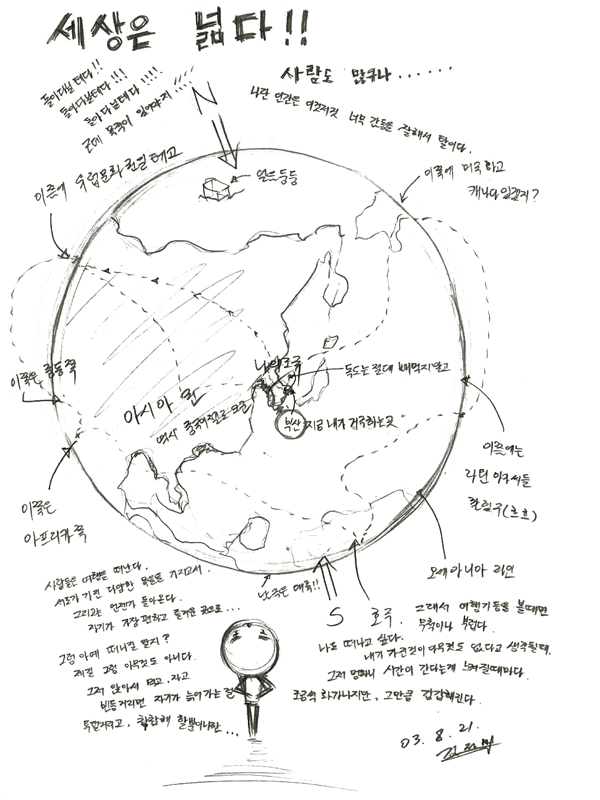 세상은 넓다!!
사람도 많구나......
나란 인간은 이것저것 너무 간능을 잘해서 탈이다.
돌아다닐테다!!
돌아다닐테다!!!
돌아다닐테다!!!!
근데 목적이 있어야지!!!!
N
얼음둥둥
이쯤에 유럽문화권일테고
이쪽에 미국하고
캐나다있겠지?
나의조국
독도는 절대 빼먹지말고
이쪽은 중동쪽
아시아
역시 중국
부산
지금 내가 거주하는곳
이쪽은
아프리카쪽
이쯤에는
라틴
(흐흐)
오세아니아 라인
남극은 대륙!!
S
호주.
사람들은 여행을 떠난다.
서로가 가진 다양한 목적을 가지고서.
그리고는 언젠가 돌아온다.
자기가 가장 편하고 즐거운 곳으로...
그럼 아예 떠나질 말지?
제길 그럼 아무것도 아니다.
그저 앉아서 먹고, 자고
빈둥거리면 자기가 늙어가는걸
그래서 여행기들을 볼때면
무척이나 부럽다.
나도 떠나고 싶다.
내가 가진것이 아무것도 없다고 생각될때,
그저 멍하니 시간이 간다는게 느껴질때마다.
조금씩 화가나지만, 그만큼 갑갑해진다.
03. 8. 21.